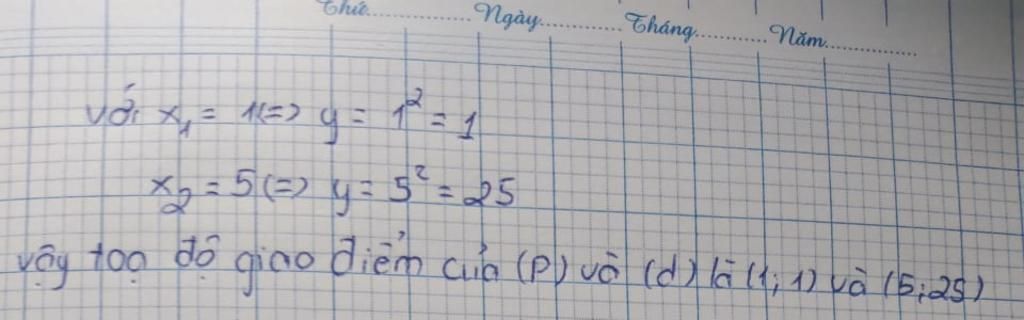 Thứ............Ngày............Tháng............Năm............
với x₁ = 1(=) y = 1² = 1
x₂ = 5(=) y = 5² = 25
vậy toạ độ giao điểm của (P) và (d) là (1; 1) và (5; 25)